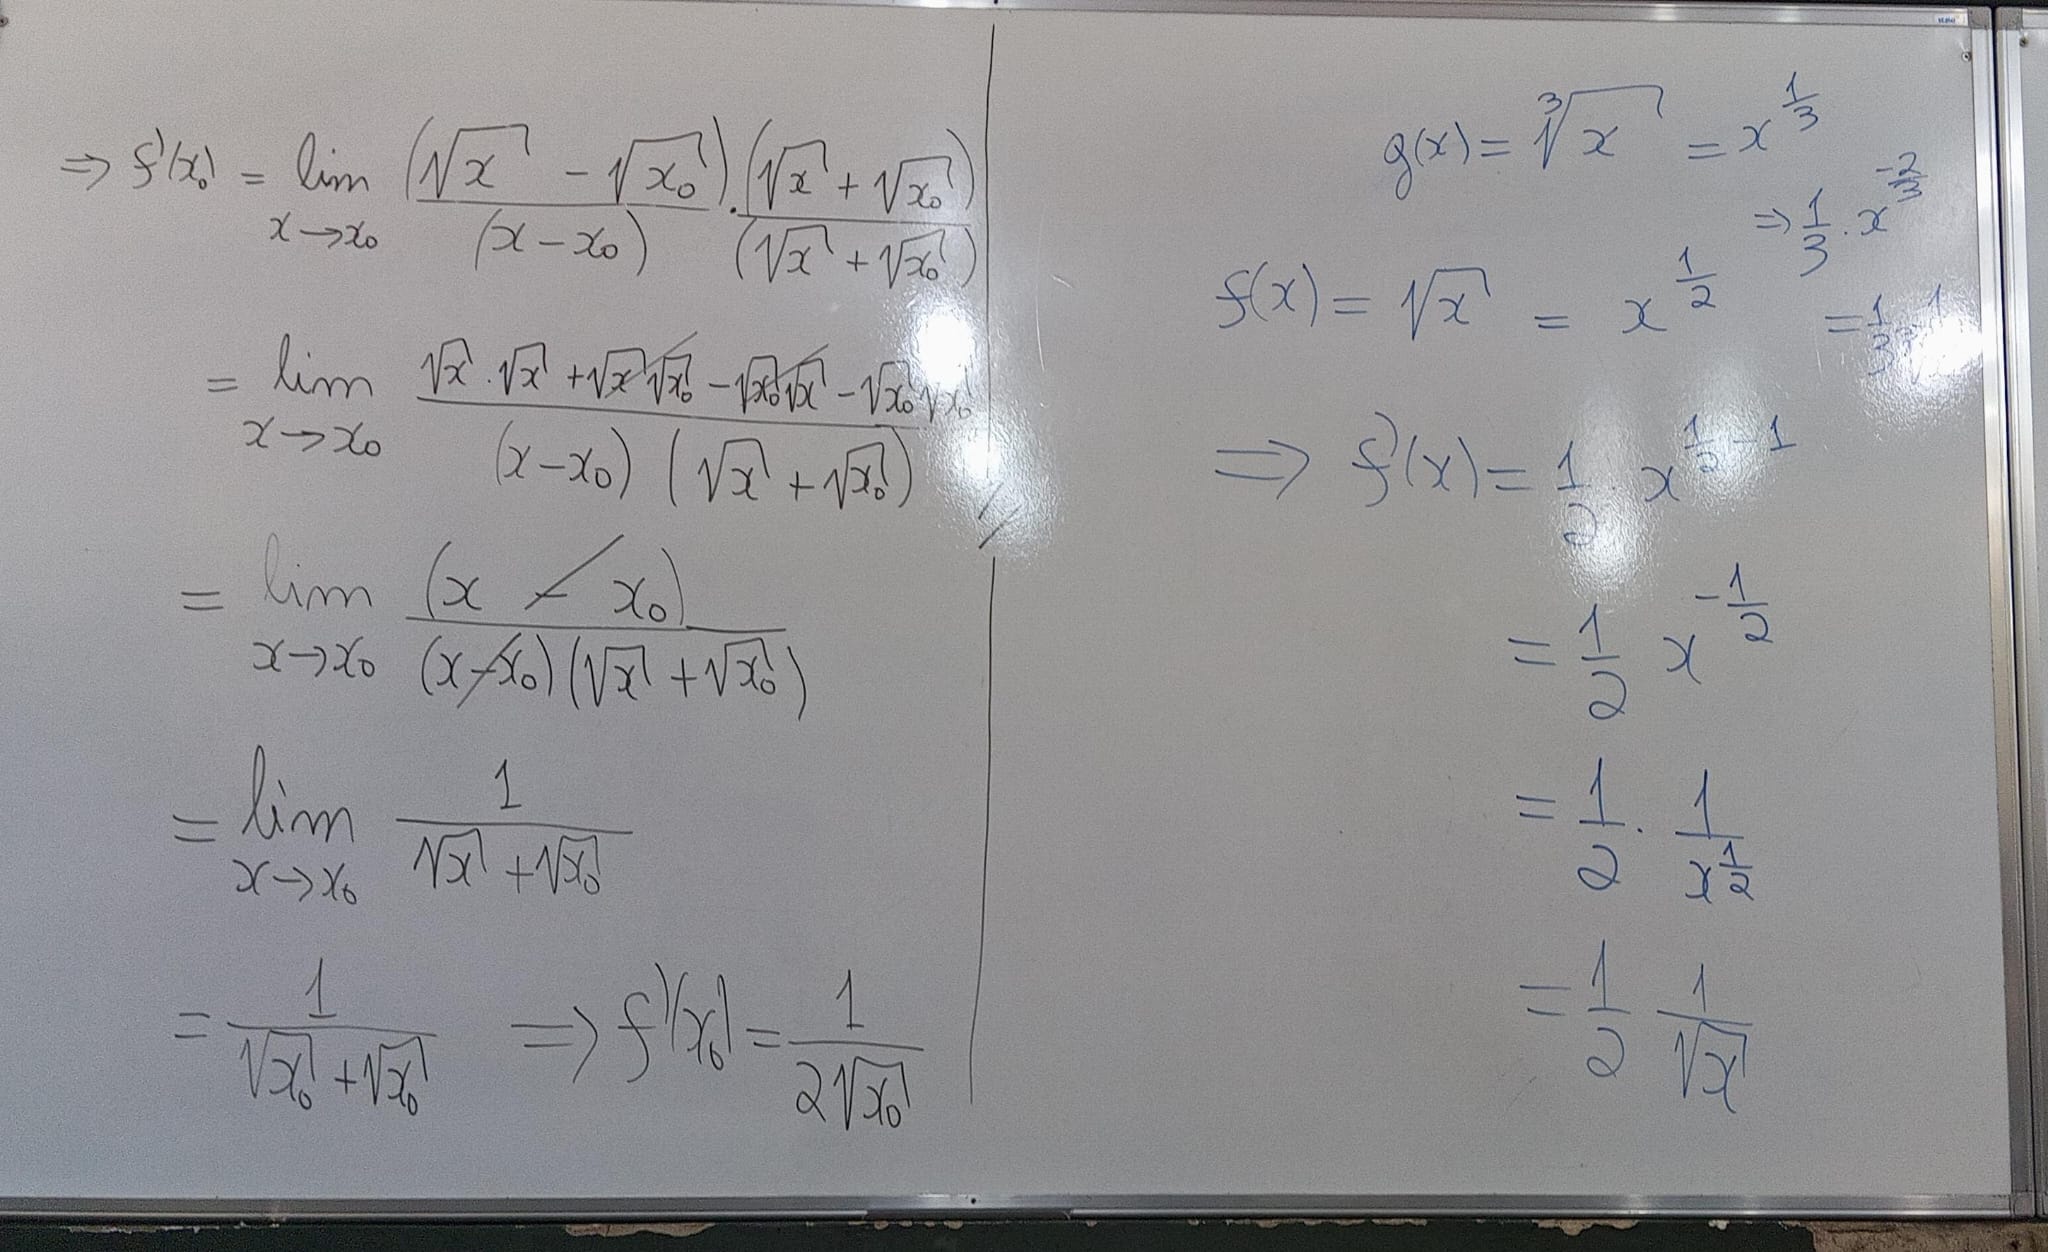 ⇒ f'(x₀) = lim x→x₀ (√x − √x₀)/(x − x₀) · (√x + √x₀)/(√x + √x₀)
= lim x→x₀ (√x · √x + √x √x₀ − √x₀ √x − √x₀ √x₀)/((x − x₀) (√x + √x₀))
= lim x→x₀ (x − x₀)/((x − x₀)(√x + √x₀))
= lim x→x₀ 1/(√x + √x₀)
= 1/(√x₀ + √x₀) ⇒ f'(x₀) = 1/(2√x₀)
g(x) = ∛x = x^(1/3)
⇒ 1/3 · x^(-2/3)
f(x) = √x = x^(1/2)
= 1/3
⇒ f'(x) = 1/2 · x^(1/2 − 1)
= 1/2 x^(-1/2)
= 1/2 · 1/x^(1/2)
= 1/2 1/√x